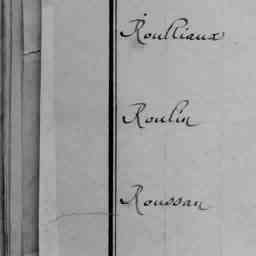 Roulliaux
Roulin
Roussan